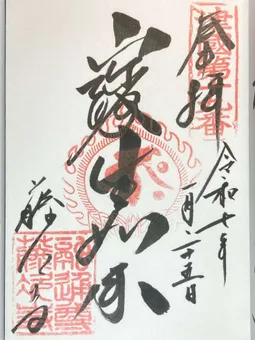 奉拝
令和七年
一月二十五日
寶生如来
藤次寺